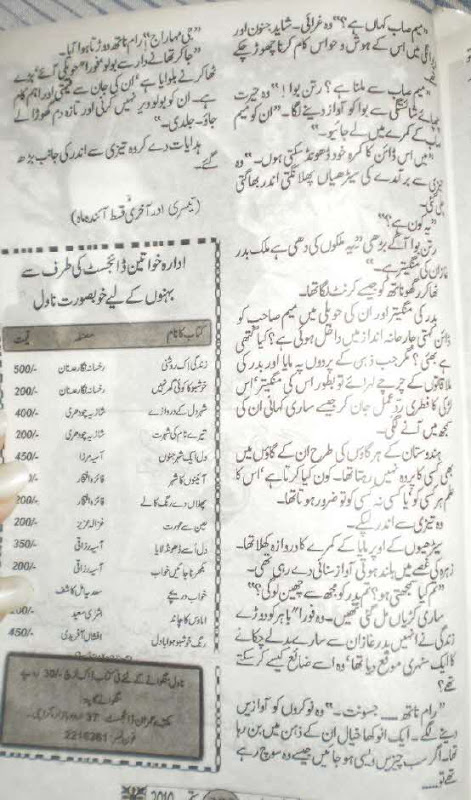 "میم صاب کہاں ہے؟" وہ غرائی۔ شاید جنون اور
میں اس کے ہوش و حواس کام کرنا چھوڑ چکے
"میم صاب سے ملنا ہے؟ رتن بوا!" وہ حیرت
شائستگی سے بوا کو آواز دینے لگا۔ "ان کو میم
صاب کے کمرے میں لے جائیو۔"
"میں اس ڈائن کا کمرہ خود ڈھونڈ سکتی ہوں۔" وہ
تیزی سے برآمدے کی سیڑھیاں پھلانگتی اندر بھاگتی
چلی گئی۔
"یہ کون ہے؟"
رتن بوا آگے بڑھی "یہ ملکوں کی دھی ہے ملک بدر
غازان کی منگیتر ہے۔"
ٹھاکر رگھوناتھ کو جیسے کرنٹ لگا تھا۔
بدر کی منگیتر اور ان کی حویلی میں میم صاحب کو
ڈائن کہتی جارحانہ انداز میں داخل ہوئی ہے؟ کیا گتھی
ہے بھئی؟ مگر جب ذہن کے پردوں پہ مایا اور بدر کی
ملاقاتوں کے چرچے لہرائے تو بطور اس کی منگیتر اس
لڑکی کا فطری ردعمل جان کر جیسے ساری کہانی ان کی
سمجھ میں آنے لگی۔
ہندوستان کے ہر گاؤں کی طرح ان کے گاؤں میں
بھی کسی کا پردہ نہیں رہتا تھا۔ کون کیا کرتا ہے اس کا
علم ہر کسی کو یا کسی نہ کسی کو تو ضرور ہوتا تھا۔
وہ تیزی سے اندر لپکے۔
سیڑھیوں کے اوپر مایا کے کمرے کا دروازہ کھلا تھا۔
زہرہ کی غصے میں بلند ہوتی آواز سنائی دے رہی تھی۔
"تم کیا سمجھتی ہو؟ تم بدر کو مجھ سے چھین لو گی؟"
ساری کڑیاں مل گئی تھیں۔ وہ فورا" باہر کو دوڑے
زندگی نے انہیں بدر غازان سے سارے بدلے چکانے
کا ایک سنہری موقع دیا تھا وہ اسے ضائع کیسے کر سکتے
تھے؟
"رام ناتھ ـــــ جسونت۔" وہ نوکروں کو آوازیں
دینے لگے۔ ایک انوکھا خیال ان کے ذہن میں بن رہا
تھا۔ اگر سب چیزیں ویسی ہو جائیں جیسے وہ سوچ رہے
تھے تو.....
"جی مہاراج!" رام ناتھ دوڑتا ہوا آیا۔
"جا کر تھانے دار سے بولو فورا" حویلی آئے بڑے
ٹھاکر نے بلوایا ہے ان کی جان سے قیمتی اور اہم کام
ہے۔ ان کو بولو دیر نہیں کرنی اور تازہ دم گھوڑا لے
جاؤ۔ جلدی۔"
ہدایات دے کر وہ تیزی سے اندر کی جانب بڑھ
گئے۔
(تیسری اور آخری قسط آئندہ ماہ)
ادارہ خواتین ڈائجسٹ کی طرف سے
بہنوں کے لیے خوبصورت ناول
کتاب کا نام مصنفہ قیمت
زندگی اک روشنی رخسانہ نگار عدنان 500/-
خوشبو کا کوئی گھر نہیں رخسانہ نگار عدنان 200/-
شہر دل کے دروازے شازیہ چودھری 400/-
تیرے نام کی شہرت شازیہ چودھری 200/-
دل ایک شہر جنوں آسیہ مرزا 450/-
آئینوں کا شہر فائزہ افتخار
پھلاں دے رنگ کالے فائزہ افتخار 200/-
عین سے عورت غزالہ عزیز 200/-
دل اُسے ڈھونڈ لایا آسیہ رزاقی 350/-
بکھرنا جائیں خواب آسیہ رزاقی 200/-
خواب دریچے سعدیہ امل کاشف
اماوس کا چاند بشریٰ سعید
رنگ خوشبو ہوا بادل افشاں آفریدی 450/-
ناول منگوانے کے لئے فی کتاب ڈاک خرچ -/30 روپے
منگوانے کا پتہ:
مکتبہ عمران ڈائجسٹ 37 اردو بازار، کراچی۔
فون نمبر: 2216361
2010